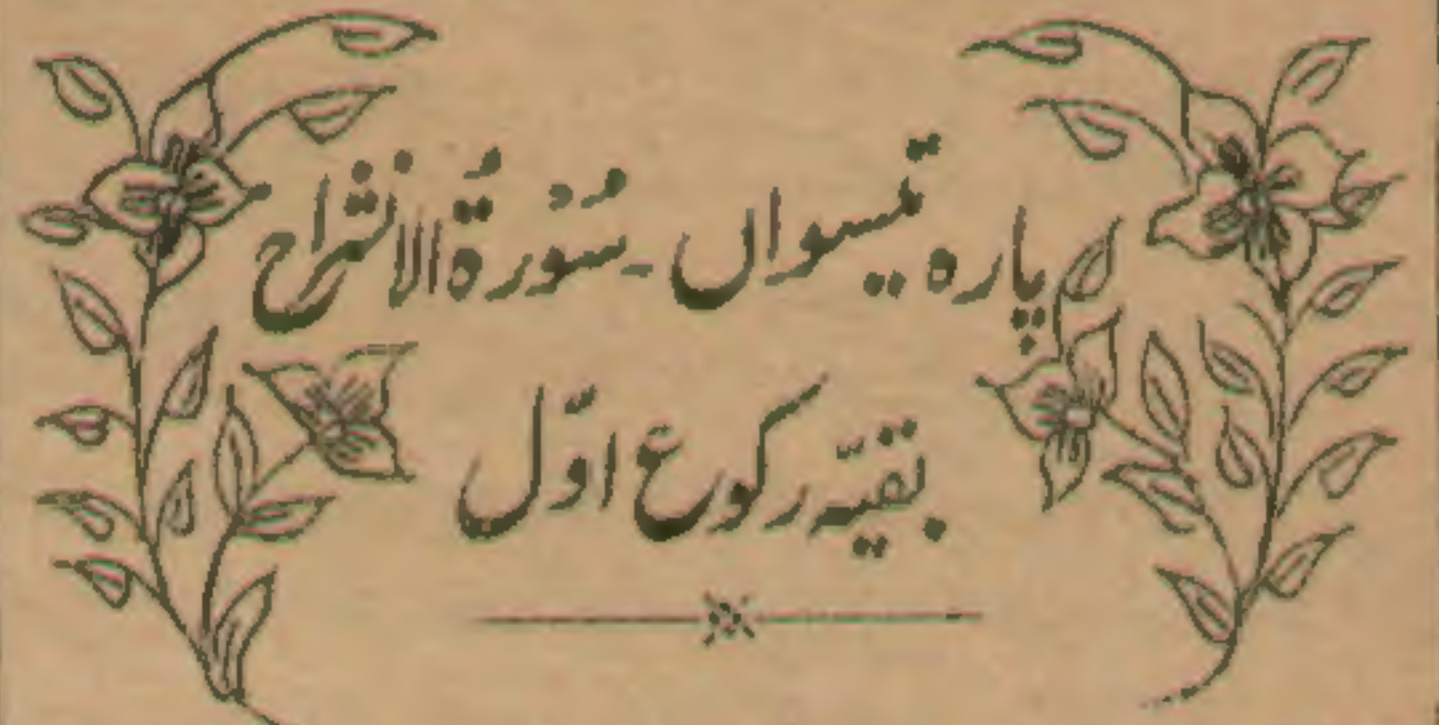 پارہ تیسواں - سُوْرۃُ الانشراح
بقیّہ رکوع اوّل